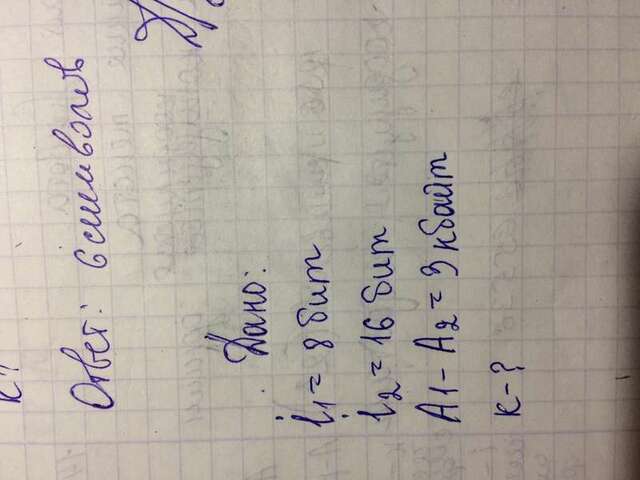 Ответ: 6 символов
Дано:
i₁ = 8 бит
i₂ = 16 бит
A1 - A₂ = 3 кбайт
к-?